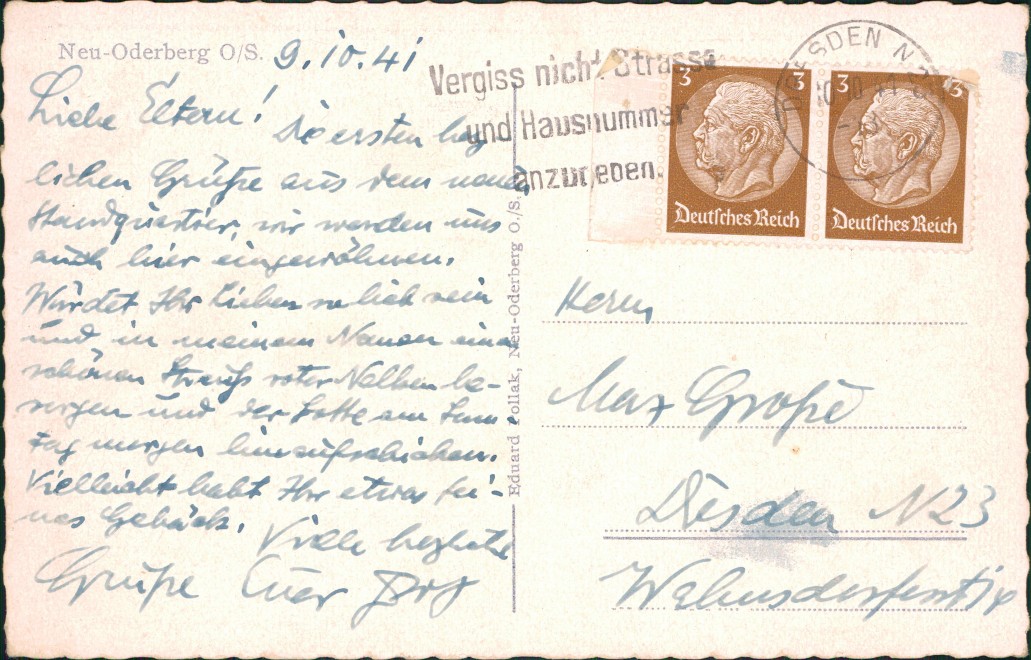 Neu-Oderberg O/S. 9.10.41
Liebe Eltern!
Die ersten herz
lichen Grüße aus dem neuen
Standquartier, wir werden uns
auch hier eingewöhnen.
Würdet Ihr Lieben so lieb sein
und in meinem Namen einen
schönen Strauß roter Nelken be-
sorgen und der Lotte am Sonn
tag morgen hinaufschicken.
Vielleicht habt Ihr etwas fei-
nes Gebäck.
Viele herzliche
Grüße Euer
Eduard Pollak, Neu-Oderberg O./S.
Vergiss nicht Strasse
und Hausnummer
anzugeben.
DRESDEN N
3 3
Deutsches Reich
3 3
Deutsches Reich
Herrn
Max Große
Dresden N23